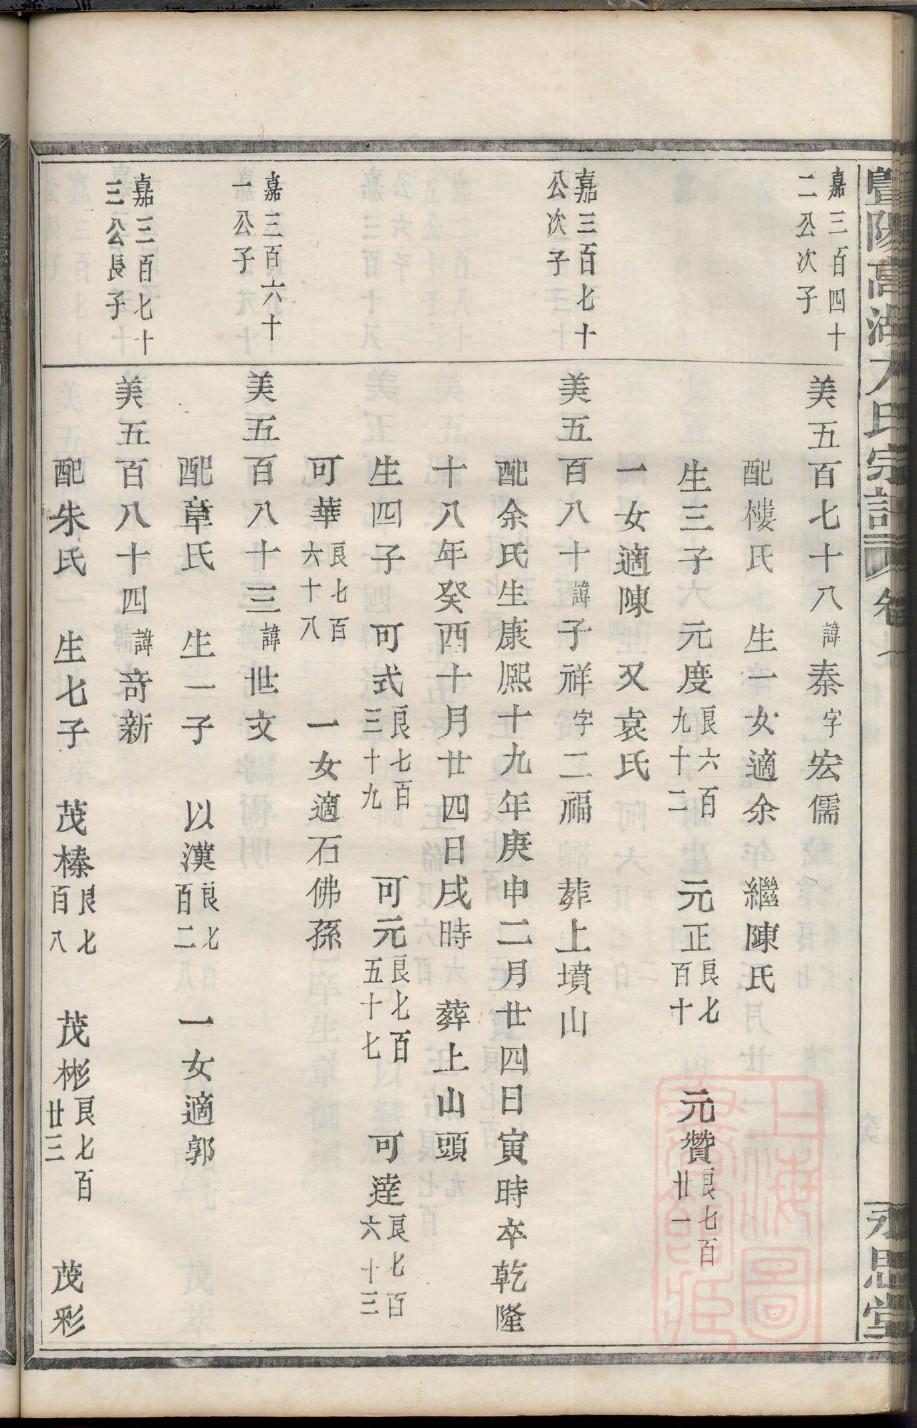 暨陽高湖方氏宗譜 卷十
永思堂
嘉三百四十二公次子
美五百七十八諱泰字宏儒
配樓氏 生一女適余 繼陳氏
生三子 元度良六百九十二 元正良七百十 元贊良七百廿一
一女適陳 又袁氏
嘉三百七十公次子
美五百八十諱子祥字二福 葬上墳山
配余氏生康熙十九年庚申二月廿四日寅時卒乾隆
十八年癸酉十月廿四日戌時 葬上山頭
生四子 可式良七百三十九 可元良七百五十七 可達良七百六十三
可華良七百六十八 一女適石佛孫
嘉三百六十一公子
美五百八十三諱世文
配章氏 生一子 以漢良七百二 一女適郭
嘉三百七十三公長子
美五百八十四諱奇新
配朱氏 生七子 茂榛良七百八 茂彬良七百廿三 茂彩